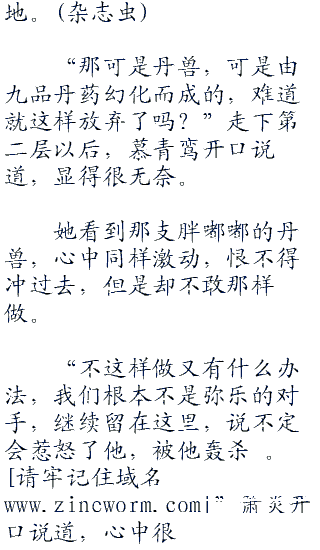 地。(杂志虫)
“那可是丹兽，可是由
九品丹药幻化而成的，难道
就这样放弃了吗？”走下第
二层以后，慕青鸾开口说
道，显得很无奈。
她看到那支胖嘟嘟的丹
兽，心中同样激动，恨不得
冲过去，但是却不敢那样
做。
“不这样做又有什么办
法，我们根本不是弥乐的对
手，继续留在这里，说不定
会惹怒了他，被他轰杀 。
[请牢记住域名
www.zincworm.com|”萧炎开
口说道，心中很